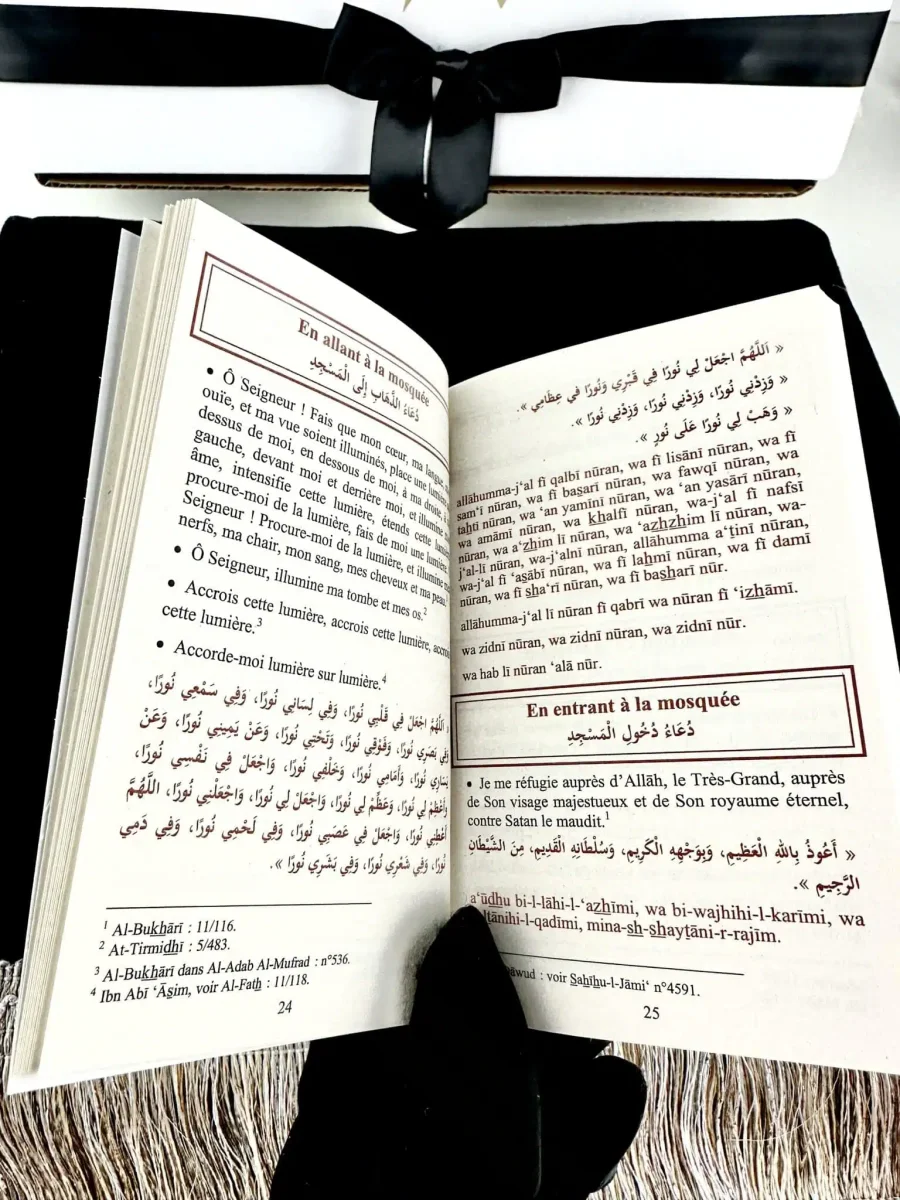 En allant à la mosquée
دُعَاءُ الذَّهَابِ إِلَى الْمَسْجِدِ
• Ô Seigneur ! Fais que mon cœur, ma langue,
ouïe, et ma vue soient illuminés, place une lumière
dessus de moi, en dessous de moi, à ma droite, à
gauche, devant moi et derrière moi, et illumine
âme, intensifie cette lumière, étends cette lumière
procure-moi de la lumière, fais de moi une lumière
Seigneur ! Procure-moi de la lumière, et illumine
nerfs, ma chair, mon sang, mes cheveux et ma peau.
• Ô Seigneur, illumine ma tombe et mes os.²
• Accrois cette lumière, accrois cette lumière,
cette lumière.³
• Accorde-moi lumière sur lumière.⁴
اللَّهُمَّ اجْعَلْ فِي قَلْبِي نُورًا، وَفِي لِسَانِي نُورًا، وَفِي سَمْعِي نُورًا،
وَفِي بَصَرِي نُورًا، وَفَوْقِي نُورًا، وَتَحْتِي نُورًا، وَعَنْ يَمِينِي نُورًا، وَعَنْ
يَسَارِي نُورًا، وَأَمَامِي نُورًا، وَخَلْفِي نُورًا، وَاجْعَلْ فِي نَفْسِي نُورًا،
وَأَعْظِمْ لِي نُورًا، وَعَظِّمْ لِي نُورًا، وَاجْعَلْ لِي نُورًا، وَاجْعَلْنِي نُورًا، اللَّهُمَّ
أَعْطِنِي نُورًا، وَاجْعَلْ فِي عَصَبِي نُورًا، وَفِي لَحْمِي نُورًا، وَفِي دَمِي
نُورًا، وَفِي شَعْرِي نُورًا، وَفِي بَشَرِي نُورًا ».
¹ Al-Bukhārī : 11/116.
² At-Tirmidhī : 5/483.
³ Al-Bukhārī dans Al-Adab Al-Mufrad : n°536.
⁴ Ibn Abī ‘Āṣim, voir Al-Fatḥ : 11/118.
24
« اَللَّهُمَّ اجْعَلْ لِي نُورًا فِي قَبْرِي وَنُورًا فِي عِظَامِي ».
« وَزِدْنِي نُورًا، وَزِدْنِي نُورًا، وَزِدْنِي نُورًا ».
« وَهَبْ لِي نُورًا عَلَى نُورٍ ».
allāhumma-j‘al fī qalbī nūran, wa fī lisānī nūran, wa fī
sam‘ī nūran, wa fī baṣarī nūran, wa fawqī nūran, wa
taḥtī nūran, wa ‘an yamīnī nūran, wa ‘an yasārī nūran,
wa amāmī nūran, wa khalfī nūran, wa-j‘al fī nafsī
nūran, wa a‘zhim lī nūran, wa ‘azhzhim lī nūran, wa-
j‘al-lī nūran, wa-j‘alnī nūran, allāhumma a‘ṭinī nūran,
wa-j‘al fī ‘aṣābī nūran, wa fī laḥmī nūran, wa fī damī
nūran, wa fī sha‘rī nūran, wa fī basharī nūr.
allāhumma-j‘al lī nūran fī qabrī wa nūran fī ‘izhāmī.
wa zidnī nūran, wa zidnī nūran, wa zidnī nūr.
wa hab lī nūran ‘alā nūr.
En entrant à la mosquée
دُعَاءُ دُخُولِ الْمَسْجِدِ
• Je me réfugie auprès d’Allāh, le Très-Grand, auprès
de Son visage majestueux et de Son royaume éternel,
contre Satan le maudit.¹
« أَعُوذُ بِاللهِ الْعَظِيمِ، وَبِوَجْهِهِ الْكَرِيمِ، وَسُلْطَانِهِ الْقَدِيمِ، مِنَ الشَّيْطَانِ
الرَّجِيمِ ».
a‘ūdhu bi-l-lāhi-l-‘azhīmi, wa bi-wajhihi-l-karīmi, wa
ltānihi-l-qadīmi, mina-sh-shayṭāni-r-rajīm.
āwud : voir Ṣaḥīḥu-l-Jāmi‘ n°4591.
25